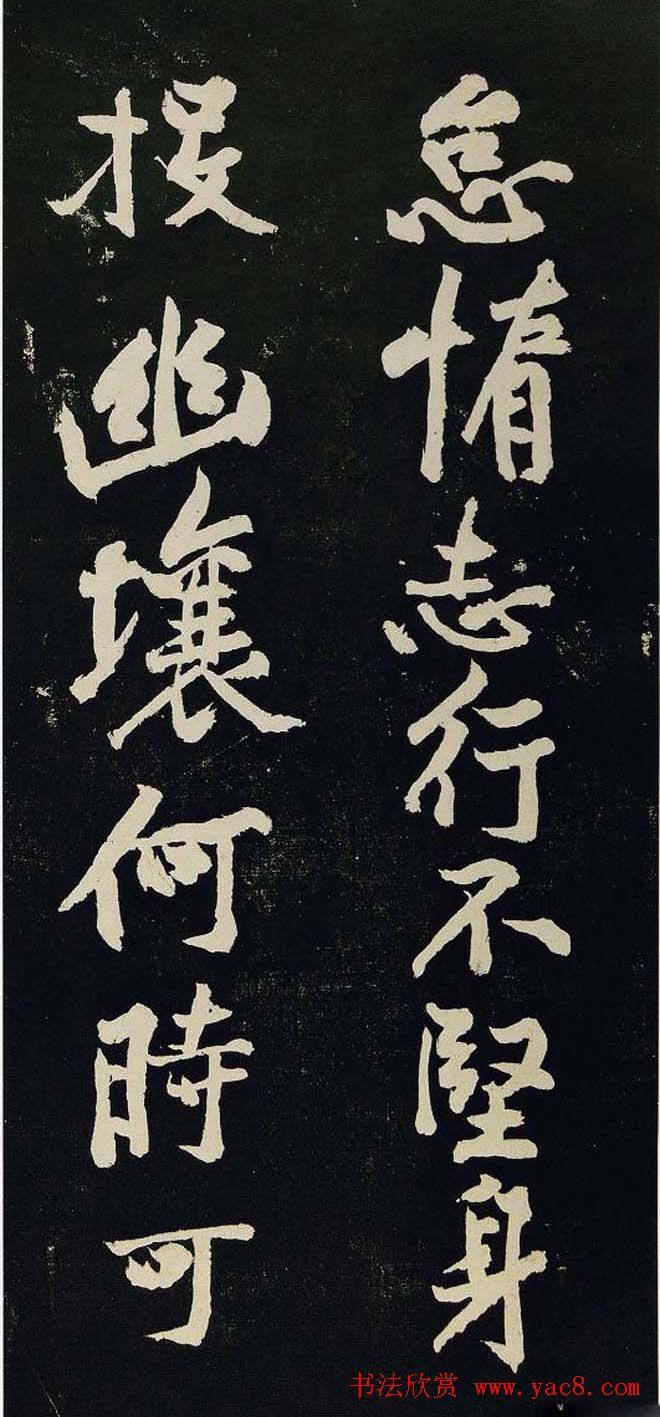 怠惰志行不堅身
投幽壤何時可
书法欣赏 www.yac8.com